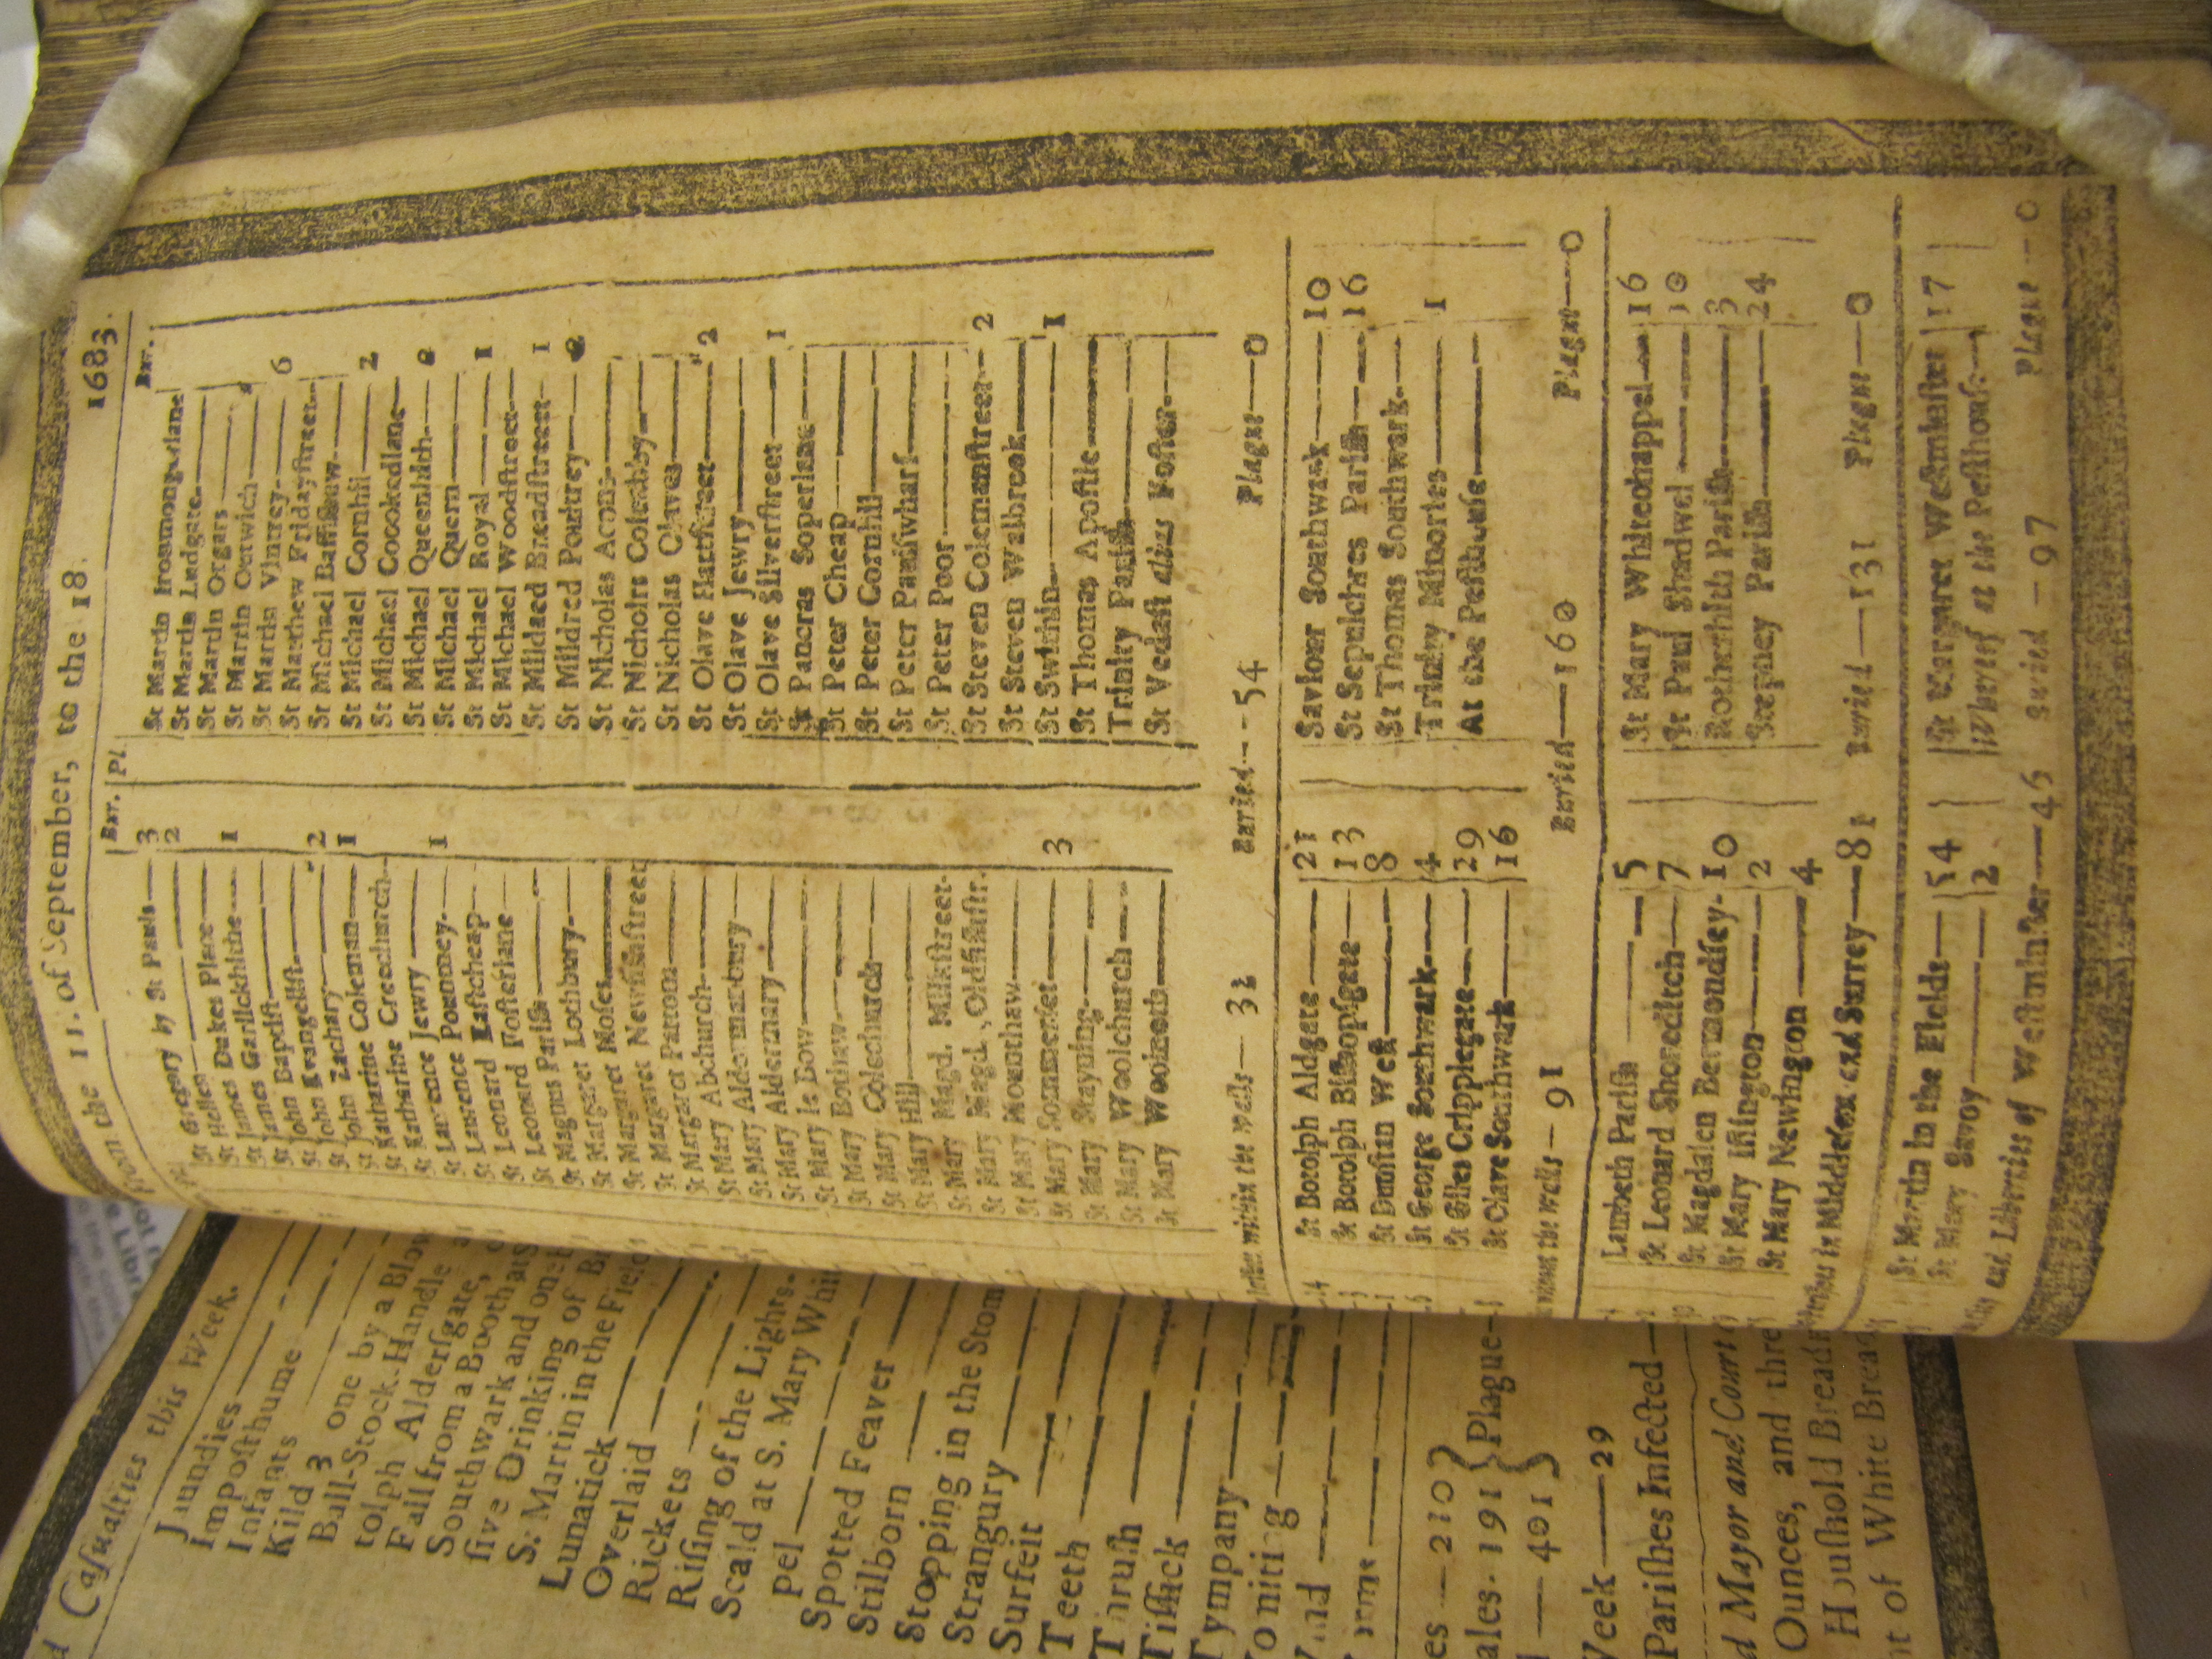 From the 11. of September, to the 18. 1683.
Bur. Pl. Bur.
St Gregory by St Pauls — 3
St Hellen — 2
St James Dukes Place
St James Garlickhithe — 1
St John Baptist
St John Evangelist
St John Zachary — 2
St Katharine Coleman — 1
St Katharine Creechurch
St Lawrence Jewry
St Lawrence Pountney — 1
St Leonard Eastcheap
St Leonard Fosterlane
St Magnus Parish
St Margaret Lothbury
St Margaret Moses
St Margaret Newfishstreet
St Margaret Pattons
St Mary Abchurch
St Mary Aldermanbury
St Mary Aldermary
St Mary le Bow
St Mary Bothaw
St Mary Colechurch
St Mary Hill
St Mary Magd. Milkstreet
St Mary Magd. Oldfishstr.
St Mary Mounthaw
St Mary Sommerset — 3
St Mary Stayning
St Mary Woolchurch
St Mary Woolnoth
St Martin Ironmongerlane
St Martin Ludgate
St Martin Orgars
St Martin Outwich
St Martin Vintrey — 6
St Matthew Fridaystreet
St Michael Bassishaw
St Michael Cornhil — 2
St Michael Crookedlane
St Michael Queenhith — 2
St Michael Quern
St Michael Royal — 1
St Michael Woodstreet
St Mildred Breadstreet — 1
St Mildred Poultrey — 2
St Nicholas Acons
St Nicholas Coleabby
St Nicholas Olaves
St Olave Hartstreet — 2
St Olave Jewry
St Olave Silverstreet — 1
St Pancras Soperlane
St Peter Cheap
St Peter Cornhil
St Peter Paulswharf
St Peter Poor
St Steven Colemanstreet — 2
St Steven Walbrook
St Swithin — 1
St Thomas Apostle
Trinity Parish
St Vedast alias Foster
within the walls — 32 Buried — 54 Plague — 0
St Botolph Aldgate — 21
St Botolph Bishopsgate — 13
St Dunstan West — 8
St George Southwark — 4
St Giles Cripplegate — 29
St Olave Southwark — 16
Saviour Southwark — 10
St Sepulchres Parish — 16
St Thomas Southwark
Trinity Minories — 1
At the Pesthouse
without the walls — 91 Buried — 160 Plague — 0
Lambeth Parish — 5
St Leonard Shoreditch — 7
St Magdalen Bermondsey — 10
St Mary Islington — 2
St Mary Newington — 4
St Mary Whitechappel — 16
St Paul Shadwel — 10
Rotherhith Parish — 3
Stepney Parish — 24
in Middlesex and Surrey — 81 Buried — 131 Plague — 0
St Martin in the Fields — 54
St Mary Savoy — 2
St Margaret Westminster 17
Whereof at the Pesthouse
City and Liberties of Westminster — 45 Buried — 97 Plague — 0
Casualties this Week.
Jaundies
Imposthume
Infants
Kild 3 one by a Blow
Ball-Stock-Handle
tolph Aldersgate,
Fall from a Booth at
Southwark and one
sive Drinking of
S. Martin in the Fields
Lunatick
Overlaid
Rickets
Rising of the Lights
Scald at S. Mary Whi
pel
Spotted Feaver
Stilborn
Stopping in the Stom
Strangury
Surfeit
Teeth
Thrush
Tissick
Tympany
Vomiting
es — 210
ales. 191 Plague
— 401
Week — 29
Parishes Infected
d Mayor and Court
Ounces, and thre
Houshold Bread
nt of White Brea